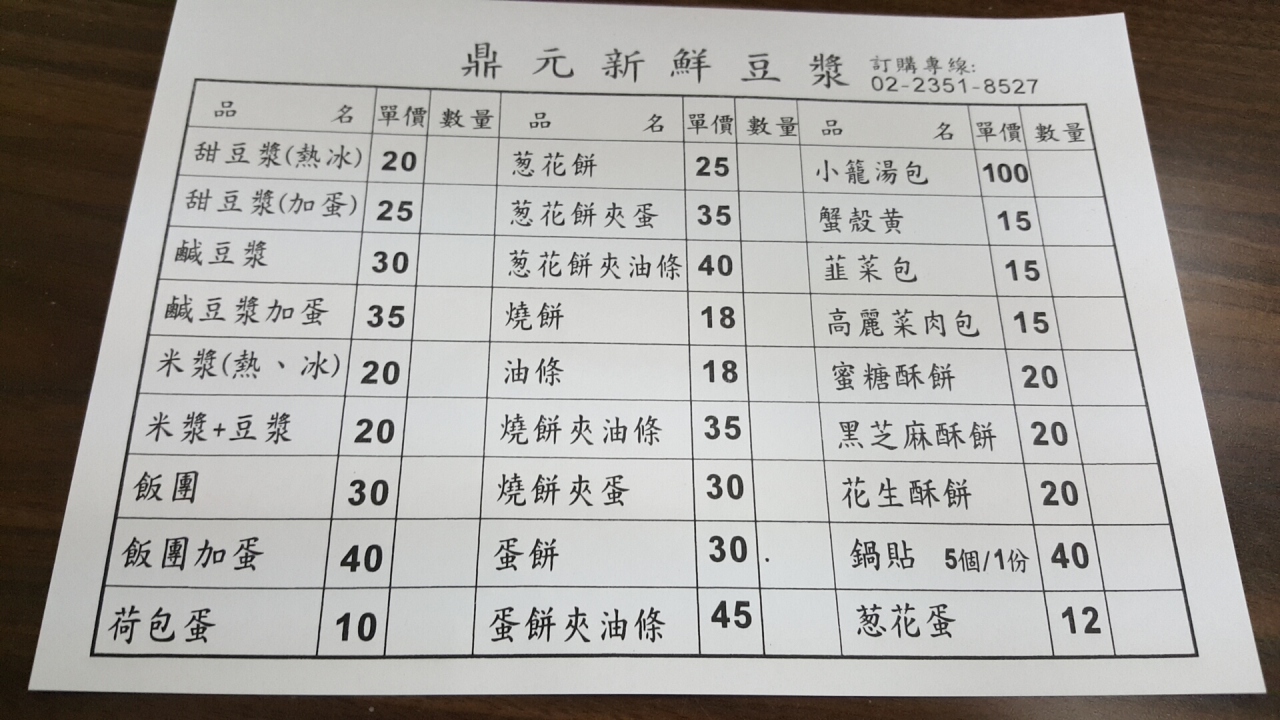 鼎元新鮮豆漿 訂購專線:
02-2351-8527
品名 單價 數量 品名 單價 數量 品名 單價 數量
甜豆漿(熱冰) 20 葱花餅 25 小籠湯包 100
甜豆漿(加蛋) 25 葱花餅夾蛋 35 蟹殼黄 15
鹹豆漿 30 葱花餅夾油條 40 韮菜包 15
鹹豆漿加蛋 35 燒餅 18 高麗菜肉包 15
米漿(熱、冰) 20 油條 18 蜜糖酥餅 20
米漿+豆漿 20 燒餅夾油條 35 黑芝麻酥餅 20
飯團 30 燒餅夾蛋 30 花生酥餅 20
飯團加蛋 40 蛋餅 30 鍋貼 5個/1份 40
荷包蛋 10 蛋餅夾油條 45 葱花蛋 12